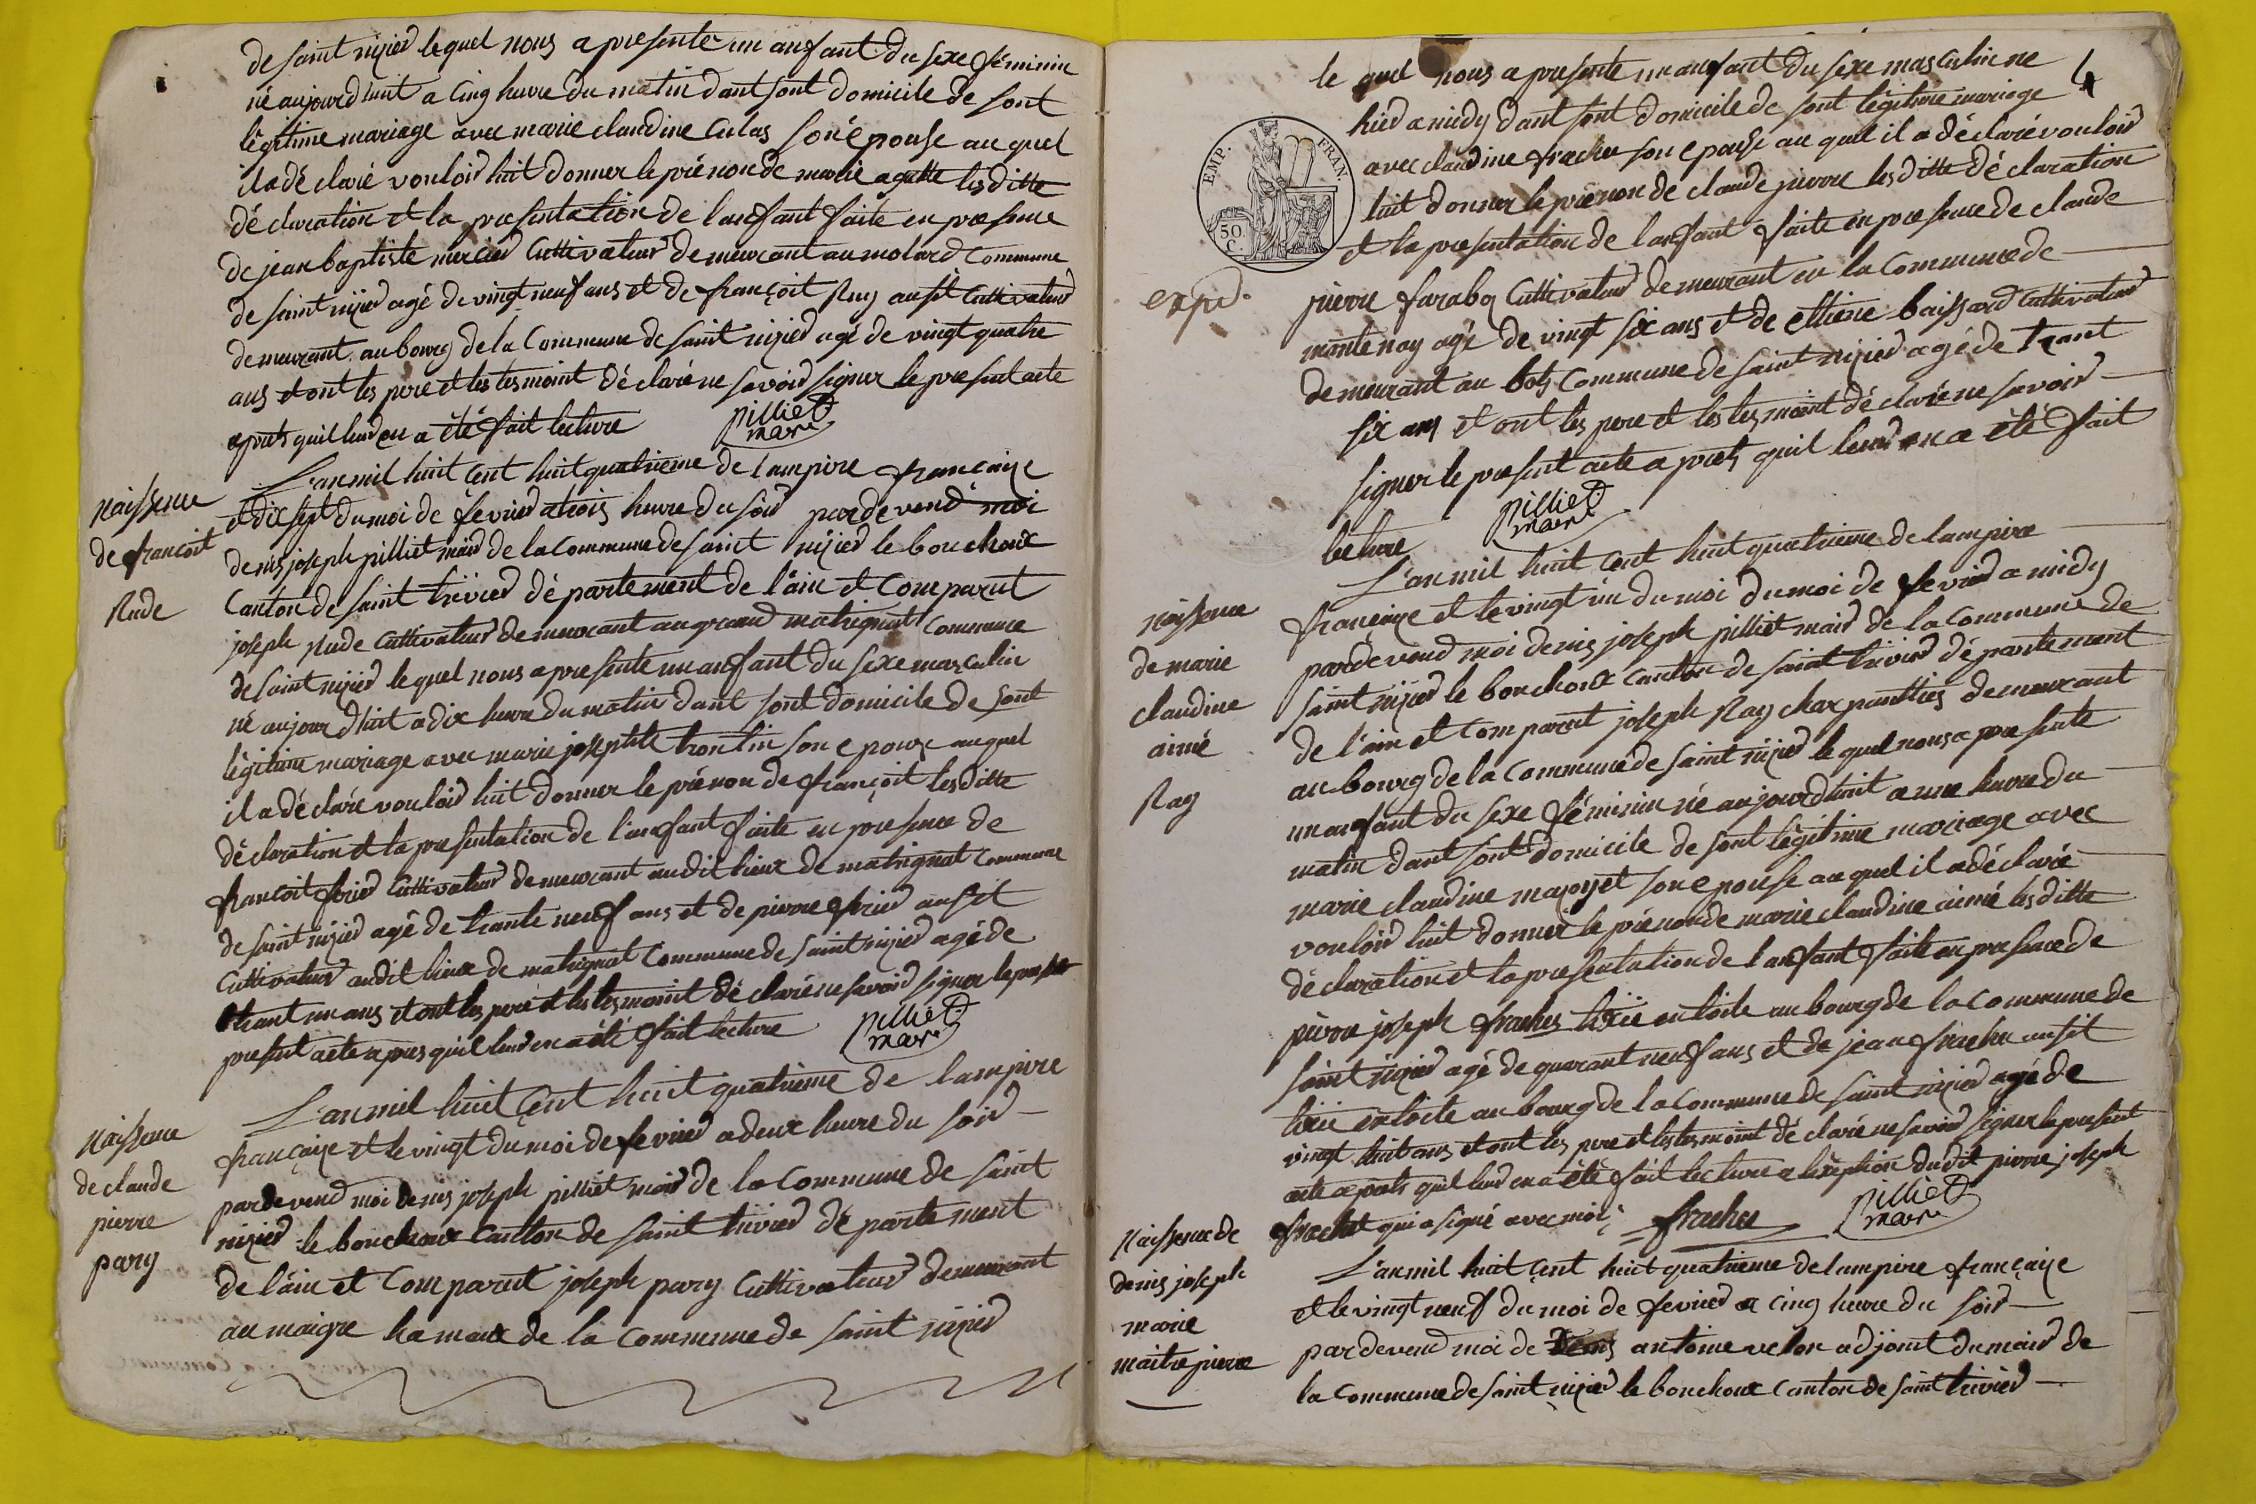 de saint nizied lequel nous a presente un anfant du sexe féminin
né aujourdhuit a cinq heure du matin dant sont domicile de sont
légitime mariage avec marie claudine Culas son épouse au quel
il a dé claré vouloir luit donner le prénon de marie agatte lesditte
déclaration et la presentation de lanfant faite en presence
de jean baptiste mercier Cuttivateur demeurant au molard Commune
de saint nizied agé de vingt neuf ans et de françoit Ray ausit Cuttivateur
demeurant au bourg de la Commune de saint nizied agé de vingt quatre
ans et ont les pere et les tesmoint déclaré ne savoir signer le present acte
aprets quil leur en a été fait lecture
pilliet
maire
Naissence
de françoit
Rude
L'an mil huit cent huit quatrieme de lampire française
et dix sept du moi de fevried a trois heure du soir pardevend moi
denis joseph pilliet maire de la commune de saint nizied le bouchoux
Canton de saint trivied département de l'ain et Comparut
joseph Rude Cuttivateur demeurant au grand matrignat Commune
de saint nizied lequel nous a presente un anfant du sexe masculin
né aujour dhuit a dix heure du matin dant sont domicile de sont
légitime mariage avec marie josephte trontin son epouse auquel
il a déclaré vouloir luit donner le prénon de françoit lesditte
déclaration et la presentation de l'anfant faite en presence de
françoit ferier Cuttivateur demeurant audit lieux de matrignat Commune
de saint nizied agé de trante neuf ans et de pierre ferier ausit
Cuttivateur audit lieux de matrignat Commune de saint nizied agé de
trant un ans et ont les peré et les tesmoint dé claré ne savoir signer le present
present acte apres quil leur en a été fait lecture
pilliet
maire
Naissence
de claude
pierre
pary
L'an mil huit cent huit quatrieme de lampire
française et le vingt du moi de fevried a deux heure du soir
pardevend moi denis joseph pilliet maire de la Commune de saint
nizied le bouchoux Canton de saint trivied dé partement
de l'ain et Comparut joseph pary Cuttivateur demeurant
au maigre hamaux de la Commune de saint nizied
4
EMP. FRAN.
50. C.
le quel nous a presente un anfant du sexe masculin ne
hier a midy dant sont domicile de sont légitime mariage
avec claudine frachu son epouse au quel il a déclaré vouloir
luit donner le prénon de claude pierre lesditte déclaration
et la presentation de lanfant faite en presence de claude
expd.
pierre faraboz Cuttivateur demeurant en la Commune de
mantenay agé de vingt six ans et de ettiene baissard Cuttivateur
demeurant au bots Commune de saint nizied agé de trant
six ans et ont les pere et les tesmoint déclaré ne savoir
signer le present acte aprets quil leur en a été fait
lecture
pilliet
maire
Naissence
de marie
claudine
aimé
Ray
L'an mil huit cent huit quatrieme de lampire
française et le vingt un du moi du moi de fevried a midy
pardevend moi denis joseph pilliet maire de la Commune de
saint nizied le bouchoux Canton de saint trivied département
de l'ain et Comparut joseph Ray charpanttier demeurant
au bourg de la Commune de saint nizied le quel nous a presente
un anfant du sexe féminin né aujourdhuit a une heure du
matin dant sont domicile de sont légitime mariage avec
marie claudine majoyet son epouse au quel il a déclaré
vouloir luit donner le prénon de marie claudine aimé lesditte
déclaration et la presentation de lanfant faite en presence de
pierre joseph frachu tixie en toile au bourg de la Commune de
saint nizied agé de quarant neuf ans et de jean frachu ausit
tixie en toile au bourg de la Commune de saint nizied agé de
vingt huit ans et ont les pere et les tesmoint dé claré ne savoir signer le present
acte aprets quil leur en a été fait lecture a lexéption dudit pierre joseph
frachet qui a signé avec moi
frachu
pilliet
maire
Naissence de
denis joseph
marie
maitrepierre
L'an mil huit cent huit quatrieme de lampire française
et le vingt neuf du moi de fevried a cinq heure du soir
pardevend moi de antoine velon adjoint du maire de
la Commune de saint nizied le bouchoux Canton de saint trivied